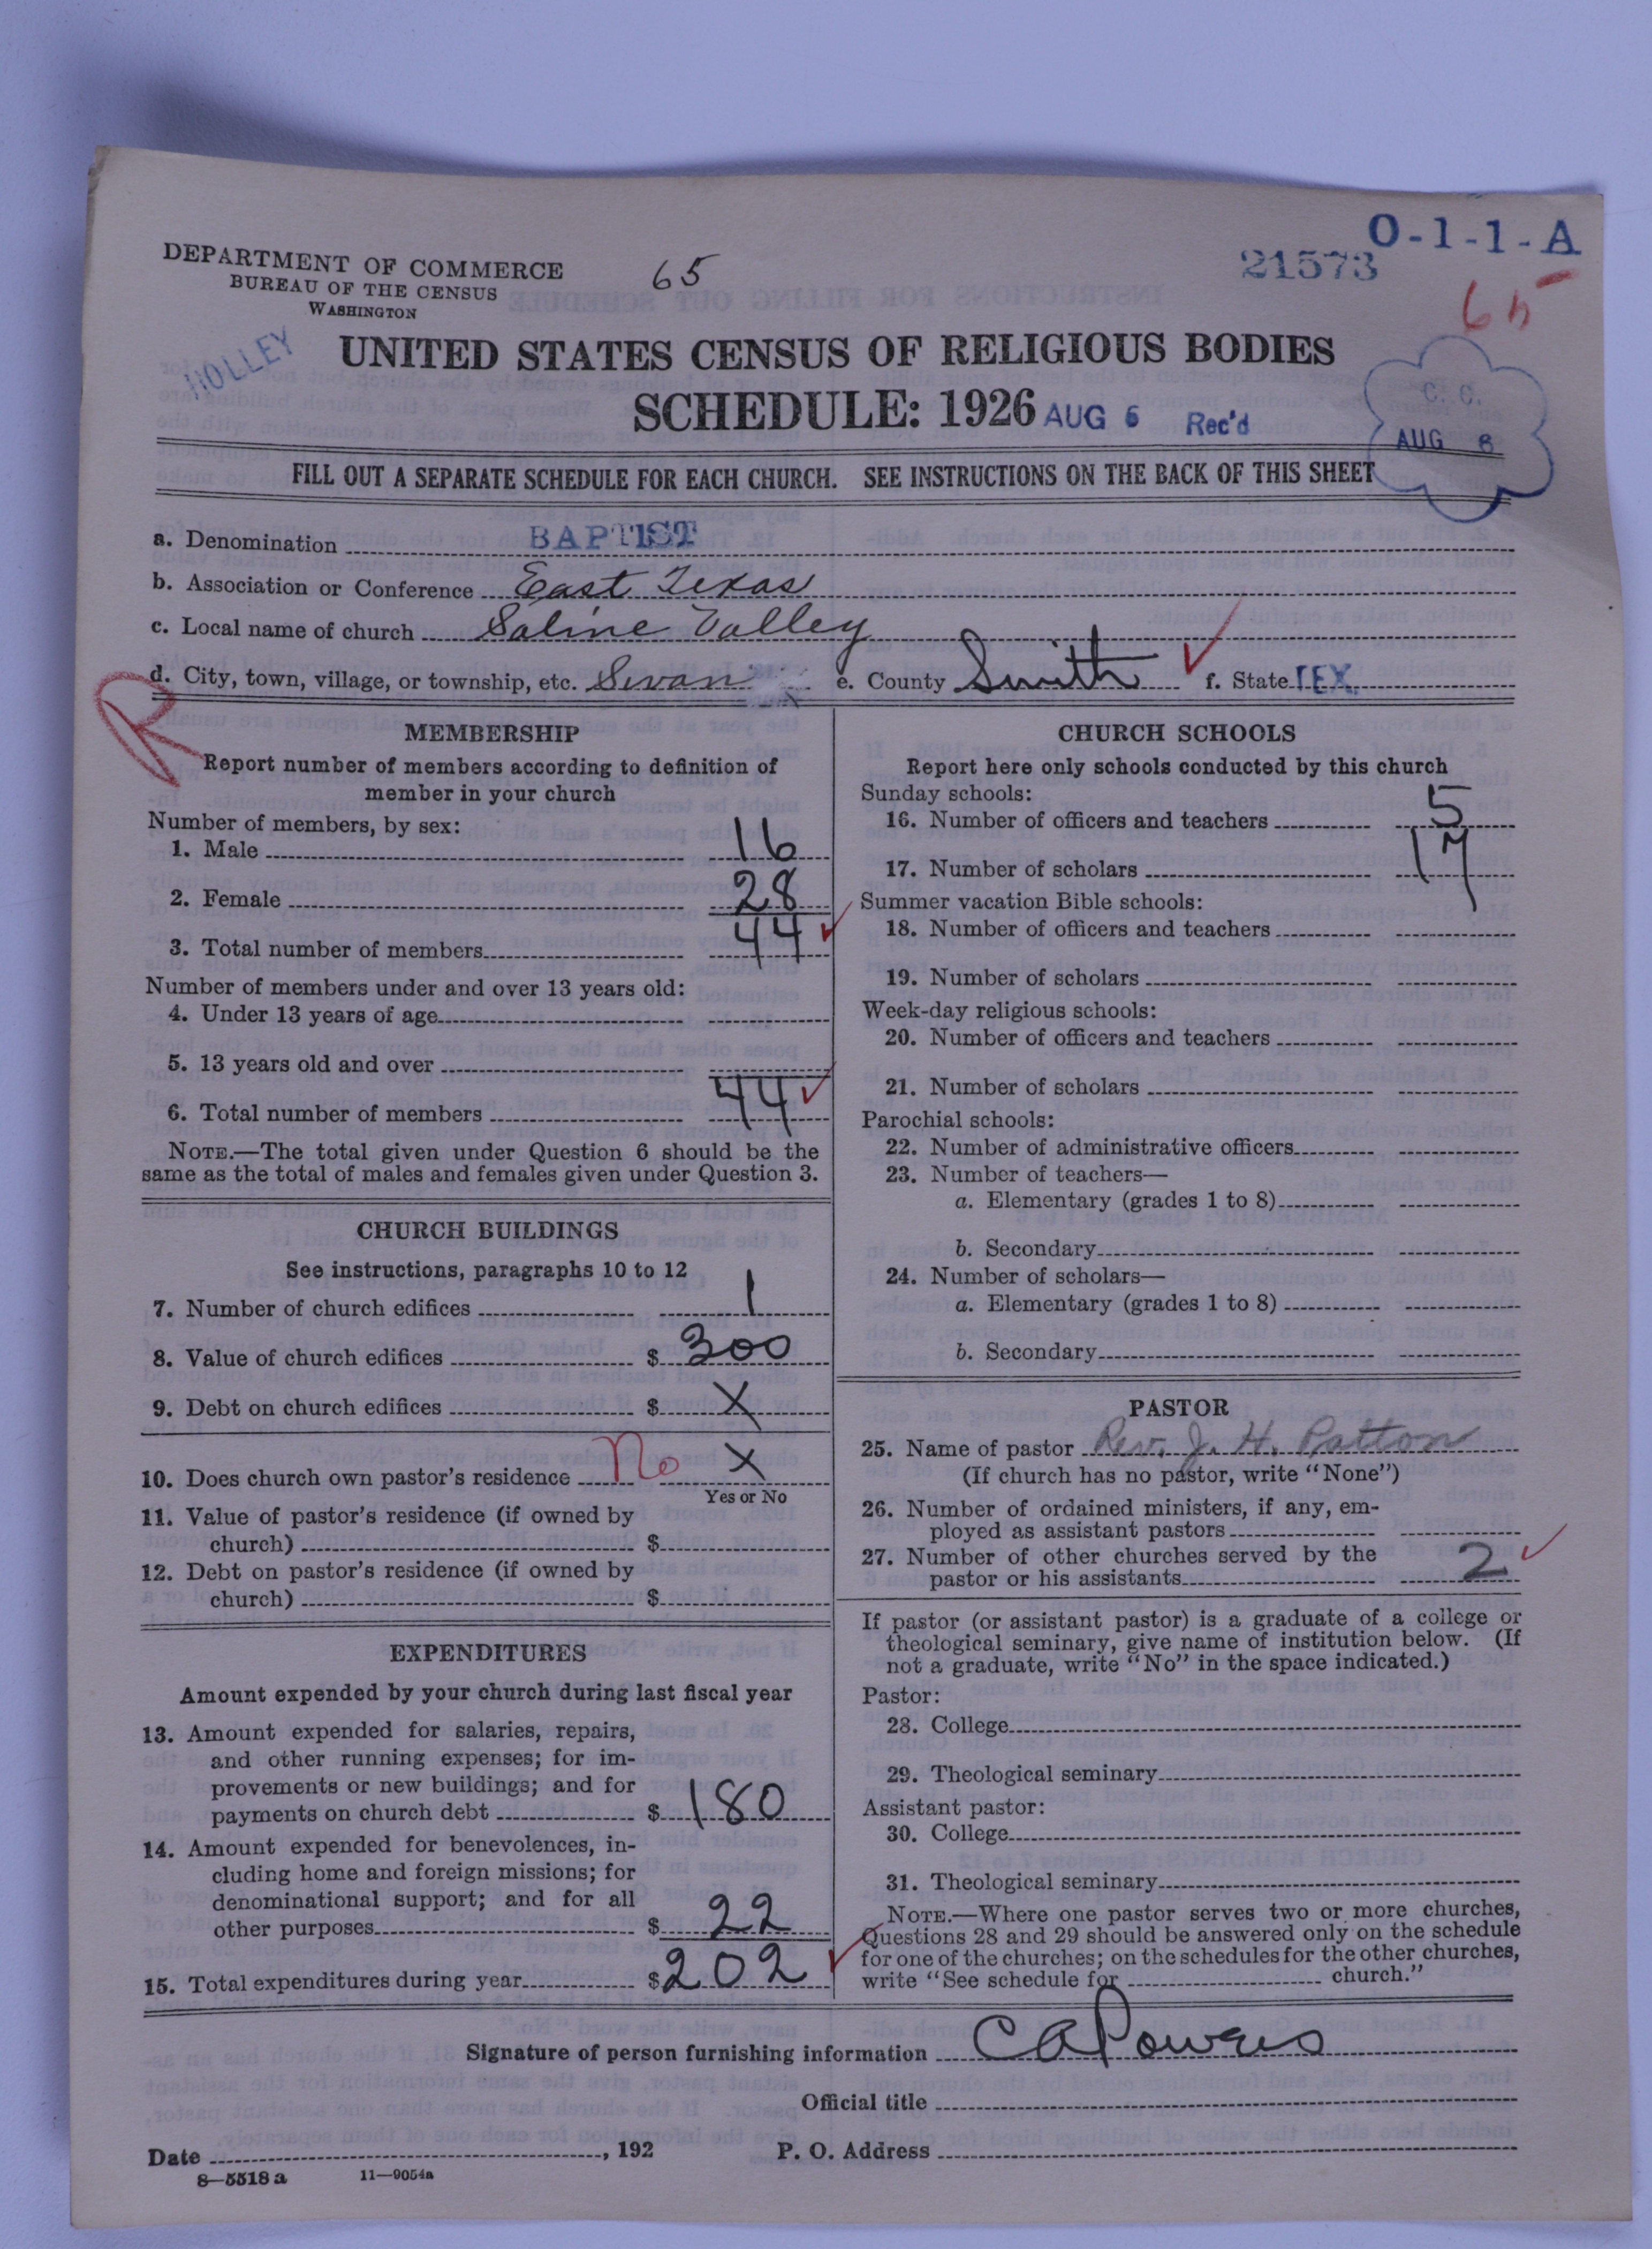 O-1-1-A
21573
DEPARTMENT OF COMMERCE
BUREAU OF THE CENSUS
WASHINGTON
65
65
HOLLEY
UNITED STATES CENSUS OF RELIGIOUS BODIES
SCHEDULE: 1926 AUG 6 Rec'd
C. C.
AUG 8
FILL OUT A SEPARATE SCHEDULE FOR EACH CHURCH. SEE INSTRUCTIONS ON THE BACK OF THIS SHEET
a. Denomination BAPTIST
b. Association or Conference East Texas
c. Local name of church Saline Valley
d. City, town, village, or township, etc. Swan e. County Smith f. State TEX.
R
MEMBERSHIP
Report number of members according to definition of
member in your church
Number of members, by sex:
1. Male 16
2. Female 28
3. Total number of members 44
Number of members under and over 13 years old:
4. Under 13 years of age
5. 13 years old and over
6. Total number of members 44
NOTE.—The total given under Question 6 should be the
same as the total of males and females given under Question 3.
CHURCH BUILDINGS
See instructions, paragraphs 10 to 12
7. Number of church edifices 1
8. Value of church edifices $ 300
9. Debt on church edifices $ X
10. Does church own pastor's residence No X
Yes or No
11. Value of pastor's residence (if owned by
church) $
12. Debt on pastor's residence (if owned by
church) $
EXPENDITURES
Amount expended by your church during last fiscal year
13. Amount expended for salaries, repairs,
and other running expenses; for im-
provements or new buildings; and for
payments on church debt $ 180
14. Amount expended for benevolences, in-
cluding home and foreign missions; for
denominational support; and for all
other purposes $ 22
15. Total expenditures during year $ 202
CHURCH SCHOOLS
Report here only schools conducted by this church
Sunday schools:
16. Number of officers and teachers 5
17. Number of scholars 17
Summer vacation Bible schools:
18. Number of officers and teachers
19. Number of scholars
Week-day religious schools:
20. Number of officers and teachers
21. Number of scholars
Parochial schools:
22. Number of administrative officers
23. Number of teachers—
a. Elementary (grades 1 to 8)
b. Secondary
24. Number of scholars—
a. Elementary (grades 1 to 8)
b. Secondary
PASTOR
25. Name of pastor Rev. J. H. Patton
(If church has no pastor, write "None")
26. Number of ordained ministers, if any, em-
ployed as assistant pastors
27. Number of other churches served by the
pastor or his assistants 2
If pastor (or assistant pastor) is a graduate of a college or
theological seminary, give name of institution below. (If
not a graduate, write "No" in the space indicated.)
Pastor:
28. College
29. Theological seminary
Assistant pastor:
30. College
31. Theological seminary
NOTE.—Where one pastor serves two or more churches,
Questions 28 and 29 should be answered only on the schedule
for one of the churches; on the schedules for the other churches,
write "See schedule for church."
Signature of person furnishing information C A Powers
Official title
Date , 192 P. O. Address
8—5518 a 11—9054a